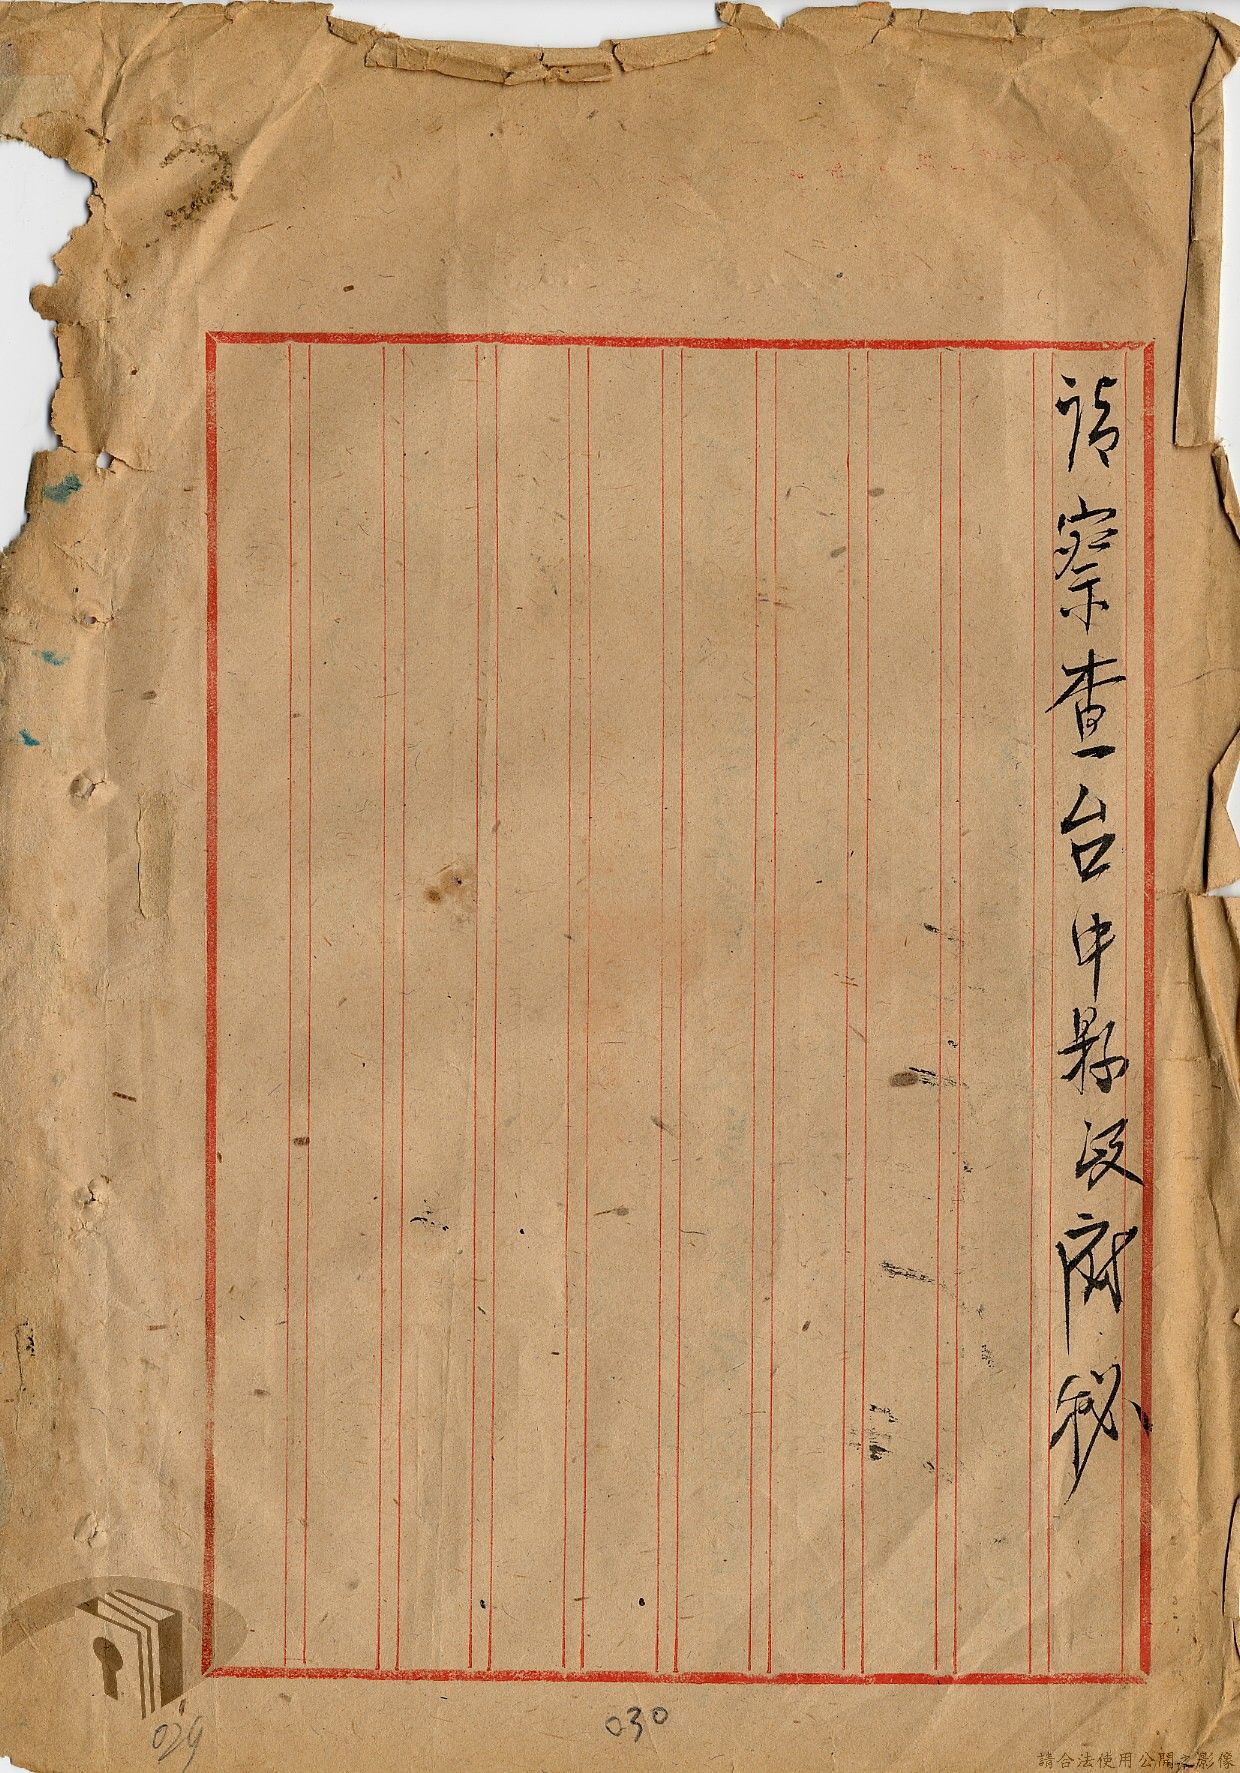 請察查台中縣政府秘
030
029
請合法使用公開之影像